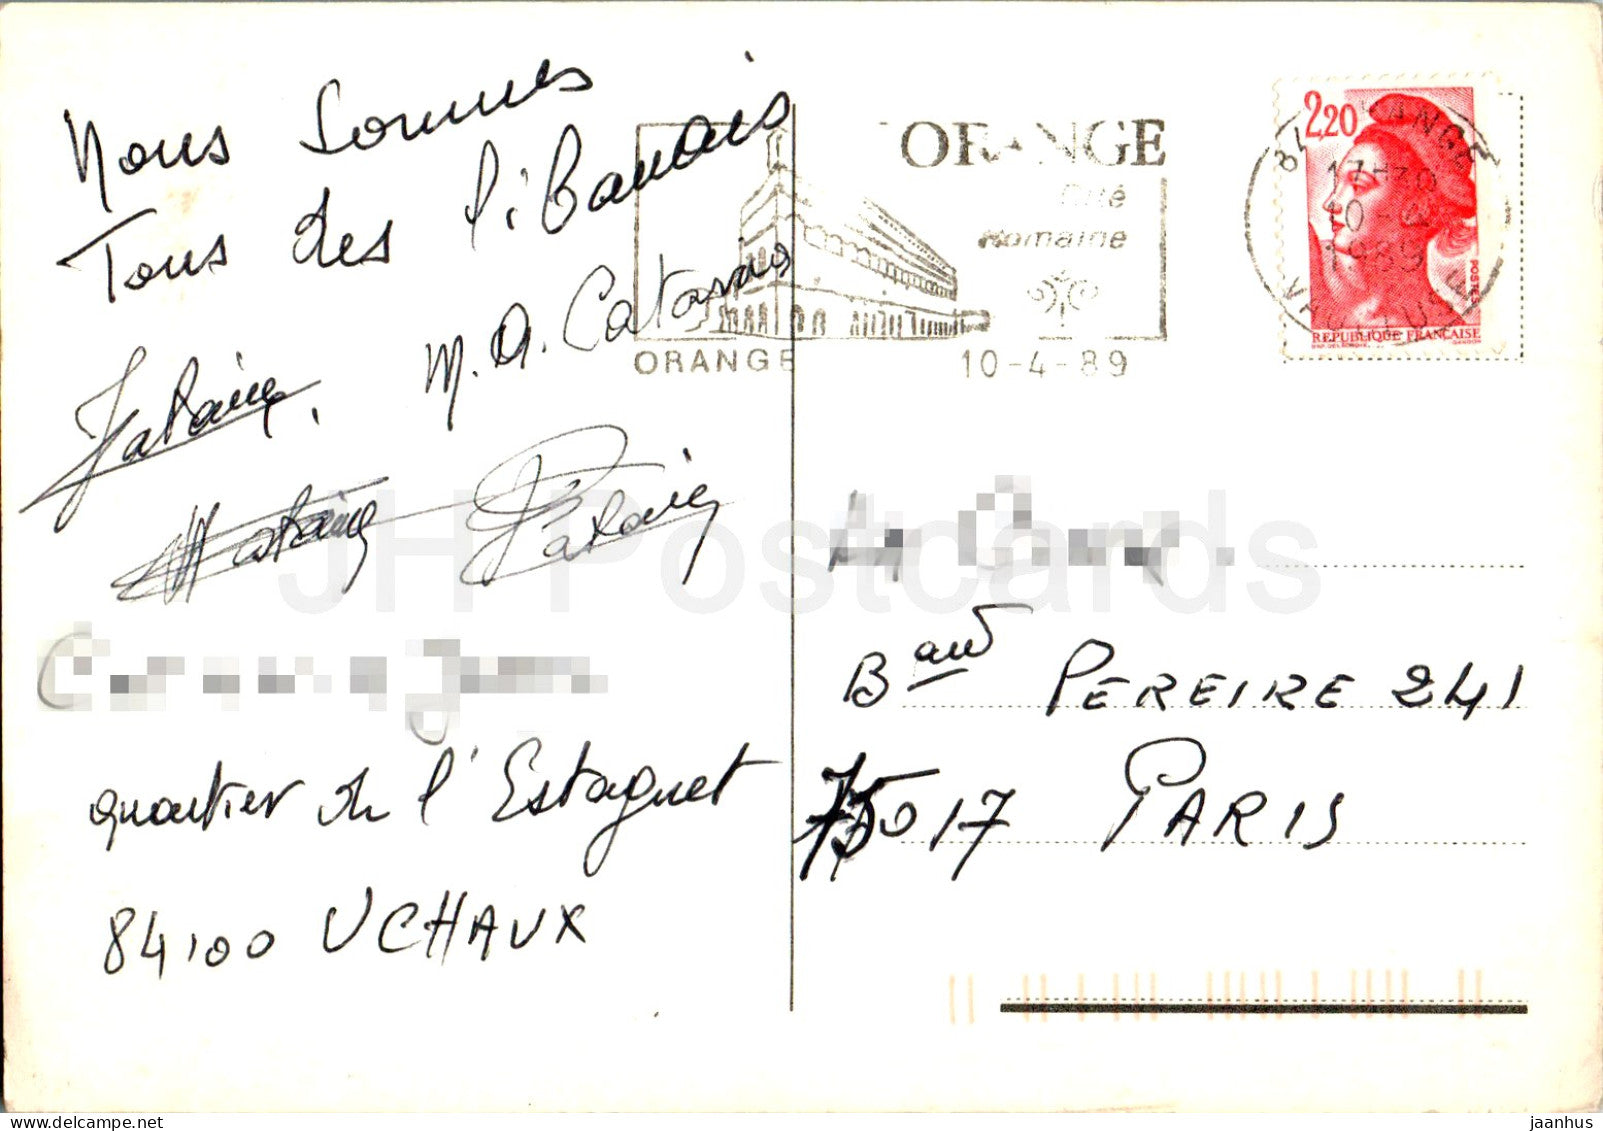 Nous Sommes
Tous des libanais
M. A.
quartier de l'Estagnet
84100 UCHAUX
ORANGE
Cité
Romaine
ORANGE
10-4-89
84 ORANGE
17-30
10-4
1989
VAUCLUSE
2,20
POSTES
REPUBLIQUE FRANÇAISE
Bard PEREIRE 241
75017 PARIS
JH Postcards
jaanhus @ delcampe.net